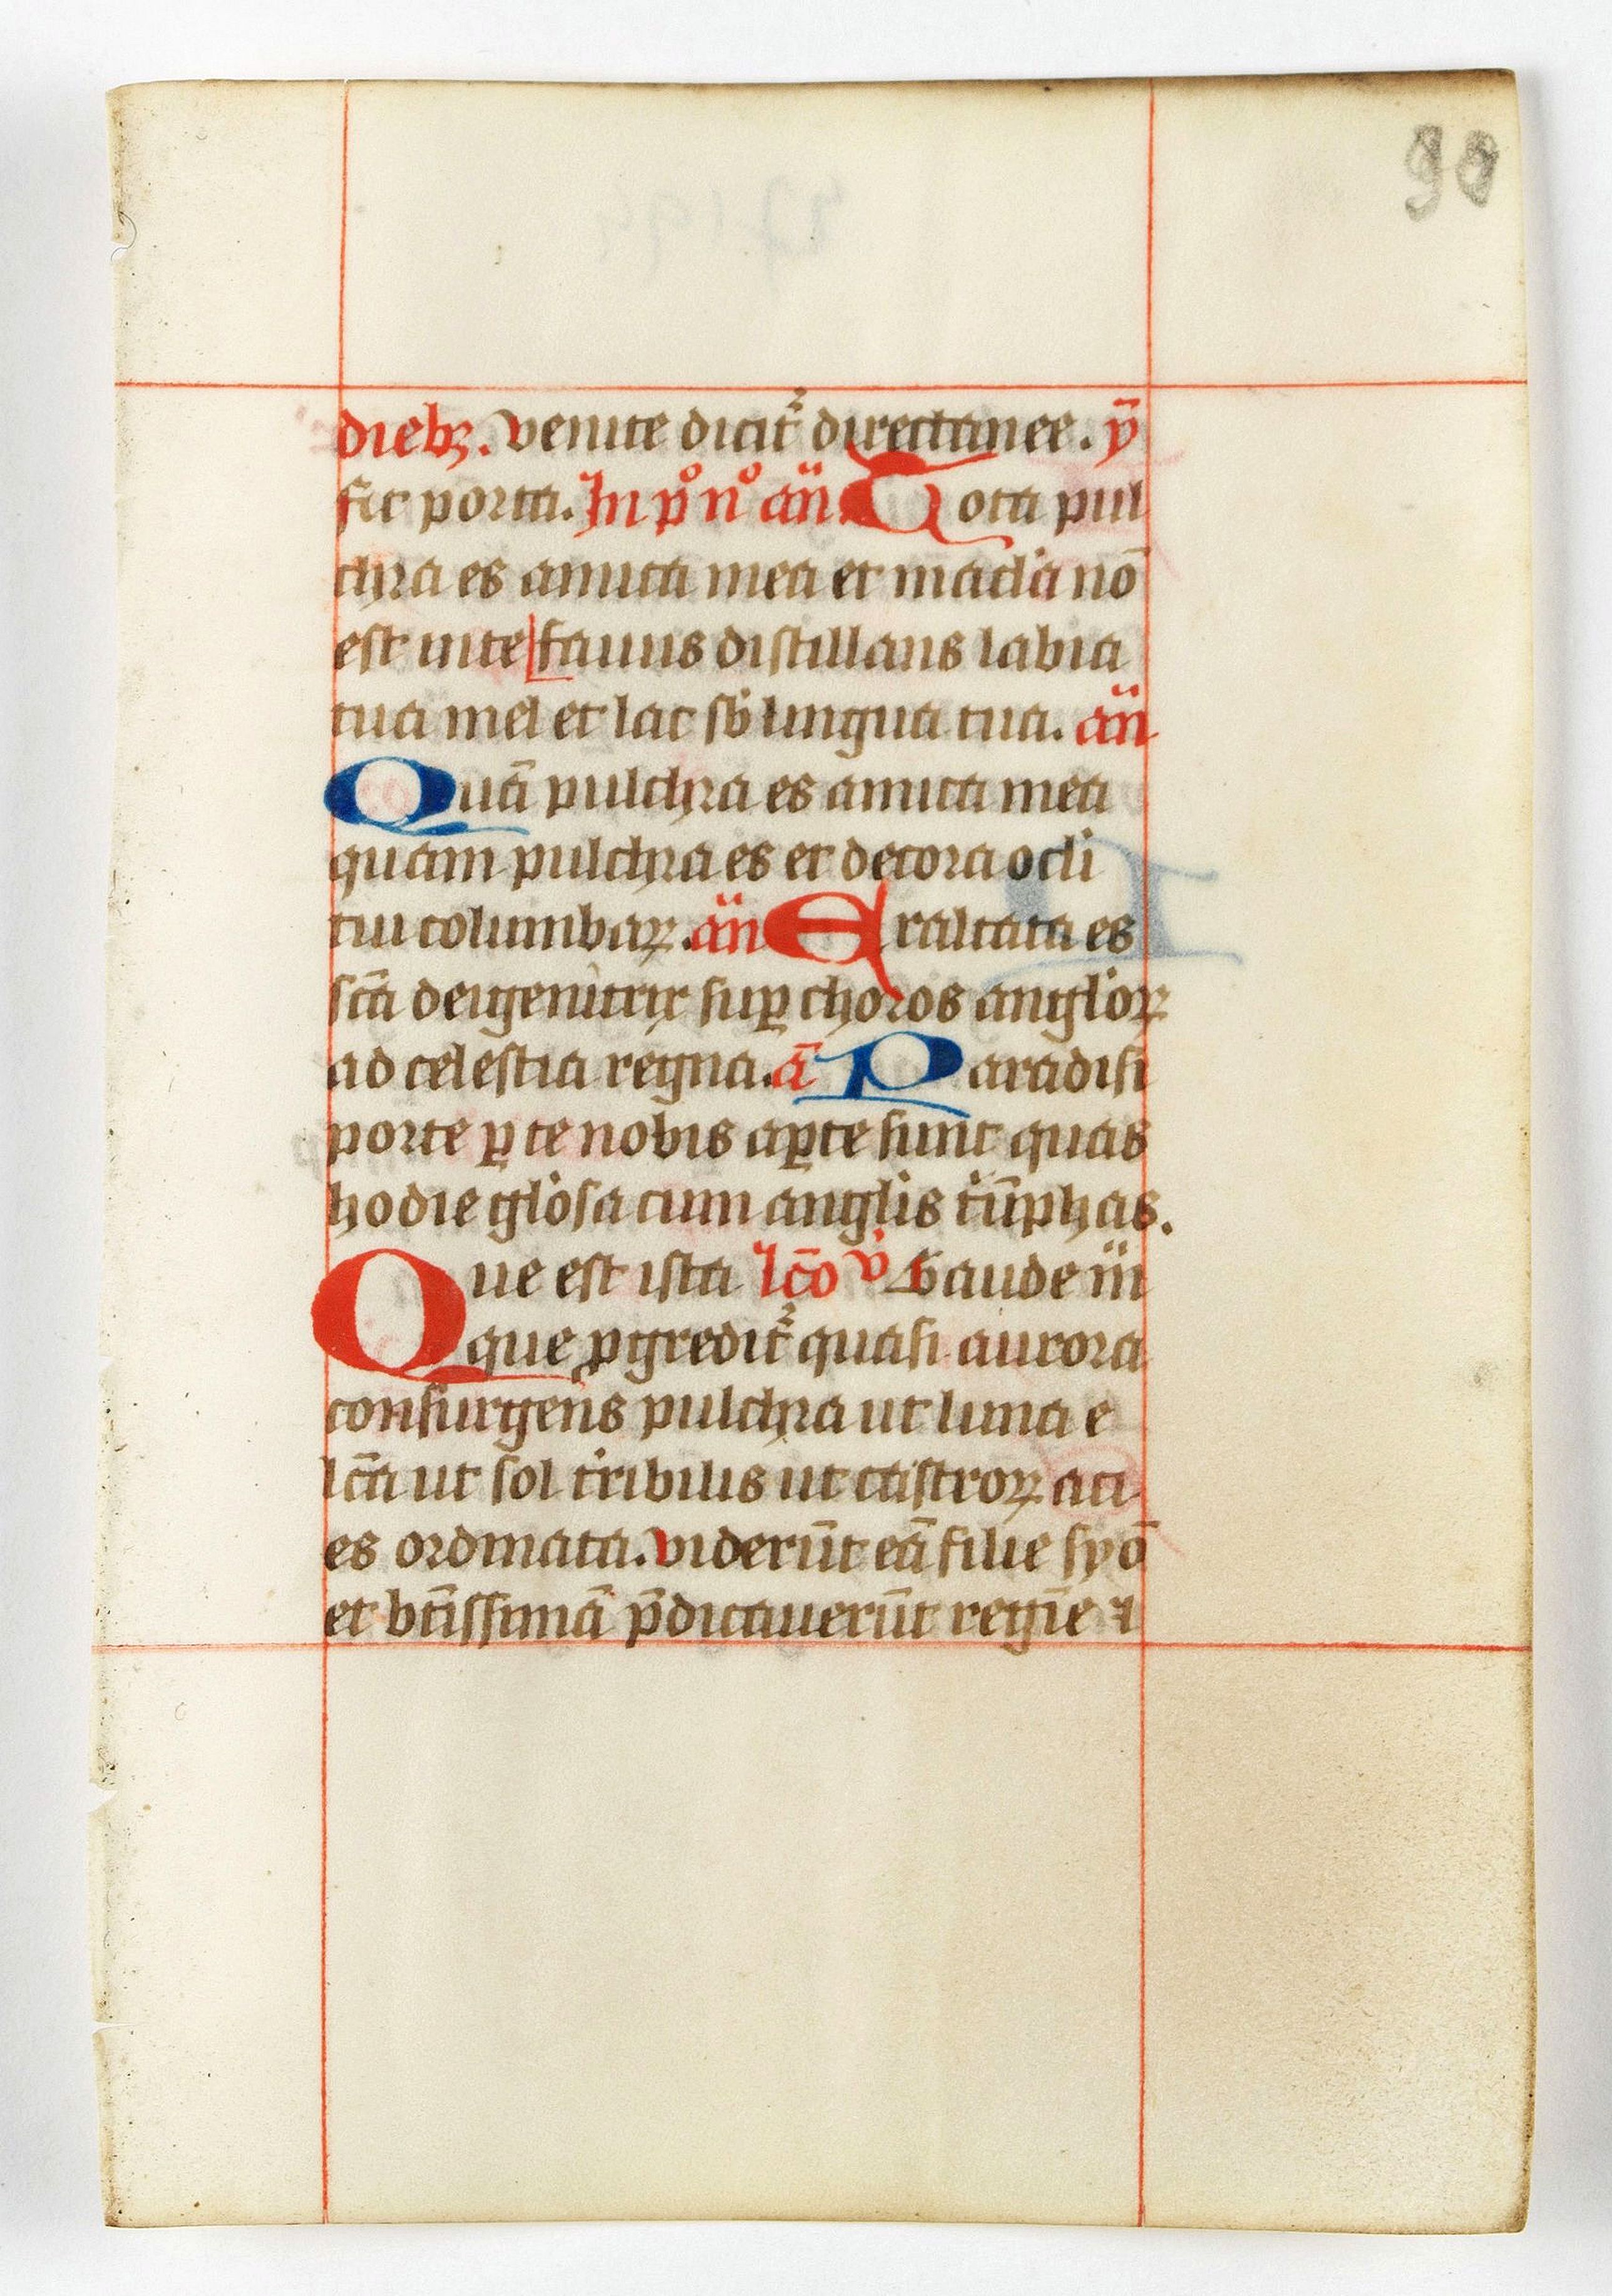 90
diebꝫ. Venite dicit᷑ directanee. ẏ̄
sic porta. In p̊ n̊ an̄ Tota pul
chra es amica mea et macl̓a nō
est in te fauus distillans labia
tua mel et lac sb̓ lingua tua. an̄
Quā pulchra es amica mea
quam pulchra es et decora ocl̓i
tui columbaꝝ. an̄ Exaltata es
sc̄a dei genitrix suꝑ choros angl̓oꝝ
ad celestia regna. ā Paradisi
porte ꝑ te nobis aꝑte sunt quas
hodie gl̓osa cum angl̓is t̓ūphas.
Que est ista Ic̄o v̓ Gaude m̄
que ꝓgredit᷑ quasi aurora
consurgens pulchra ut luna e
lc̄a ut sol t̓ribilis ut castroꝝ aci
es ordinata. Viderūt eā filie syō
et bt̄issimā p̄dicauerūt regīe ⁊